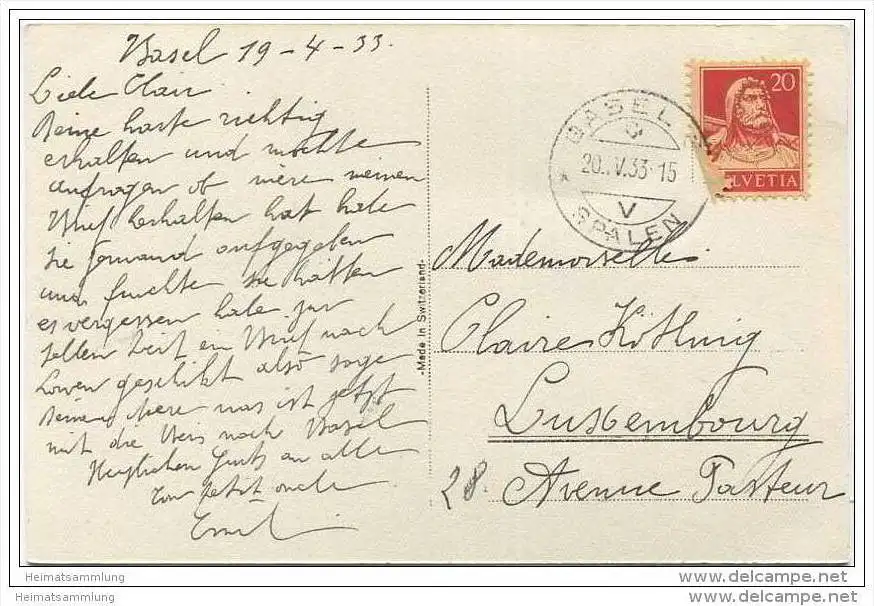 Basel 19-4-33.
Liebe Clair.
Deine karte richtig
erhalten und möchte
anfragen ob mère meinen
Brief erhalten hat habe
sie jemand aufgegeben
und sie hätten
es vergessen habe zur
selben Zeit ein Brief nach
Löwen geschikt also sage
deiner mère was ist jetzt
mit die Reis nach Basel
Herzlichen Gruß an alle
oncle
Emil
BASEL 2
20.V.33-15
V
SPALEN
20
HELVETIA
-Made in Switzerland-
Mademoiselle
Claire
Luxembourg
28. Avenue Pasteur
Heimatsammlung
Heimatsammlung
www.delcampe.net
www.delcampe.net